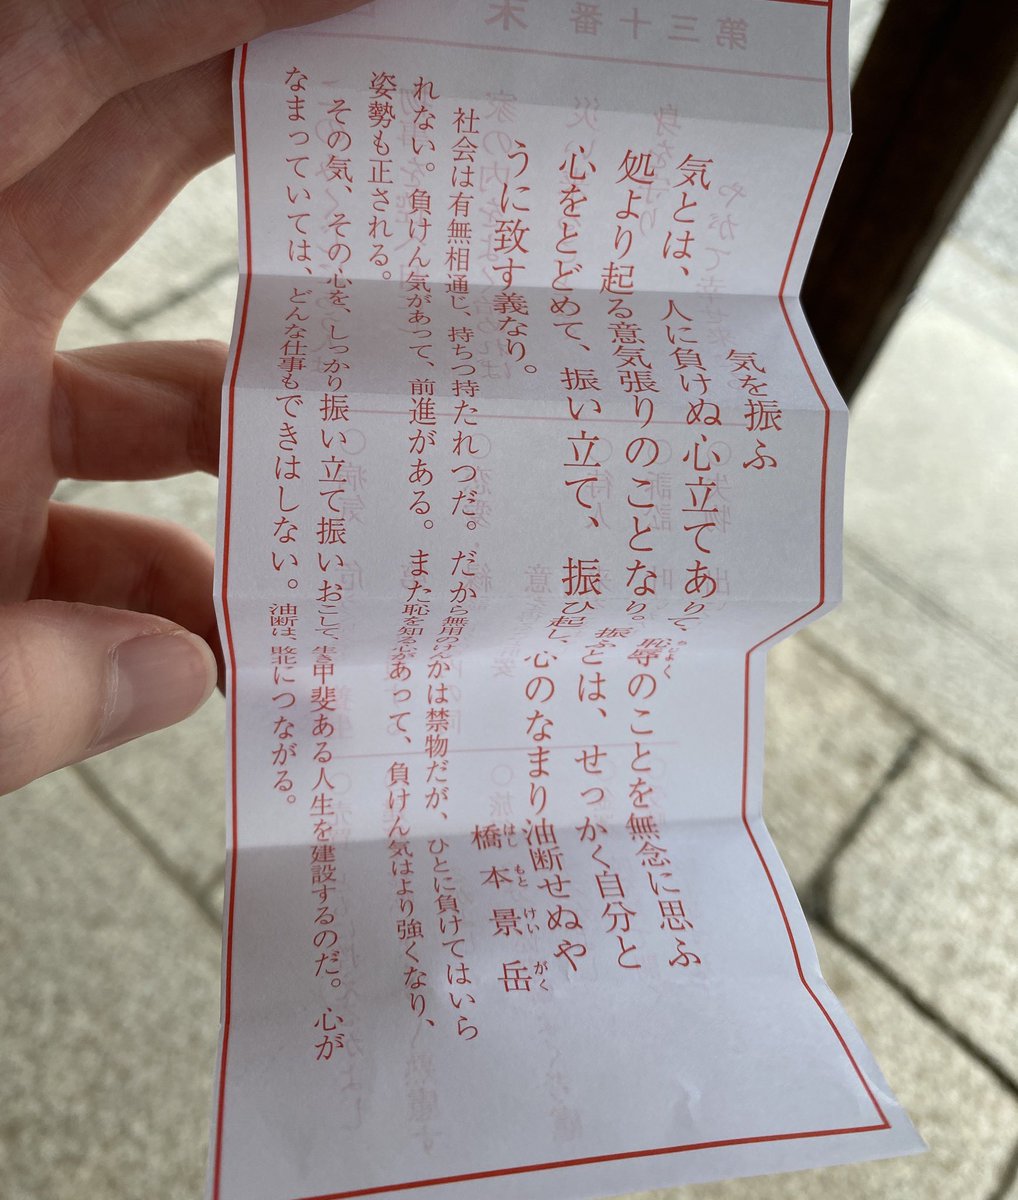 第三十番 末
気を振ふ
気とは、人に負けぬ心立てありて、恥辱のことを無念に思ふ
処より起る意気張りのことなり。振ふとは、せっかく自分と
心をとどめて、振い立て、振ひ起し、心のなまり油断せぬや
うに致す義なり。
橋本景岳
はしもとけいがく
社会は有無相通じ、持ちつ持たれつだ。だから無用のけんかは禁物だが、ひとに負けてはいら
れない。負けん気があって、前進がある。また恥を知る心があって、負けん気はより強くなり、
姿勢も正される。
その気、その心を、しっかり振い立て振いおこして、生き甲斐ある人生を建設するのだ。心が
なまっていては、どんな仕事もできはしない。油断は、敗北につながる。